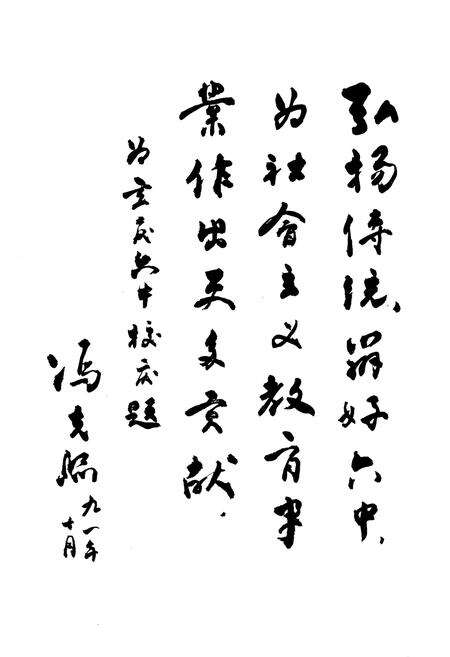 弘扬传统、辦好六中,
为社會主义教育事
業作出更多贡献.
为重庆六中校庆题
冯克熙
九一年
十月